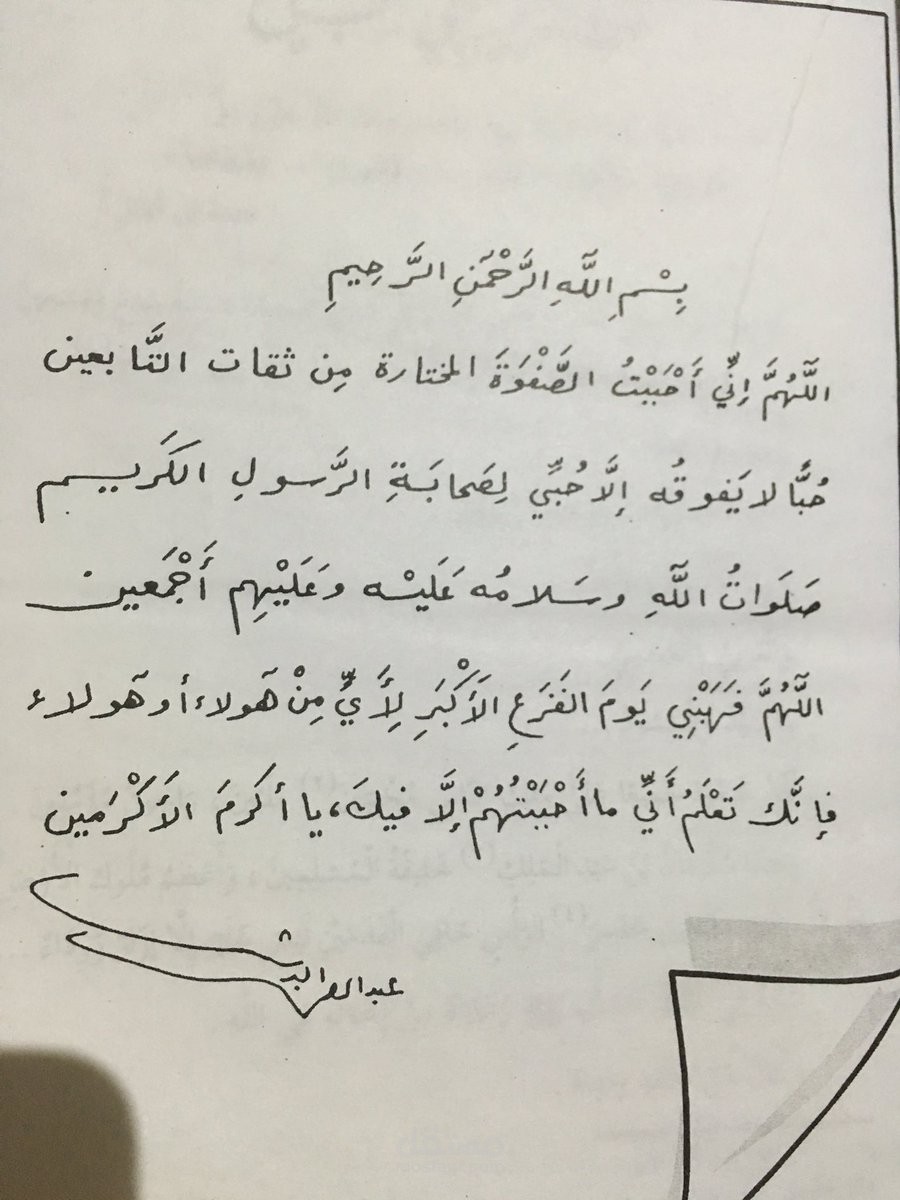 بِسْمِ اللَّهِ الرَّحْمَنِ الرَّحِيمِ
اللَّهُمَّ إِنِّي أَحْبَبْتُ الصَّفْوَةَ المختارة مِن ثقات التَّابعين
حُبًّا لا يَفوقُه إِلَّا حُبِّي لِصَحابَةِ الرَّسولِ الكَريم
صَلَواتُ اللَّهِ وسَلامُه عَلَيْه وعَلَيْهِم أَجْمَعين
اللَّهُمَّ فَهَبْنِي يَومَ الفَزَعِ الأَكْبَرِ لِأَيٍّ مِنْ هَؤلاء أو هَؤلاء
فإنَّك تَعْلَمُ أَنِّي ما أَحْبَبْتُهُمْ إلَّا فيكَ، يا أكرمَ الأَكْرَمين